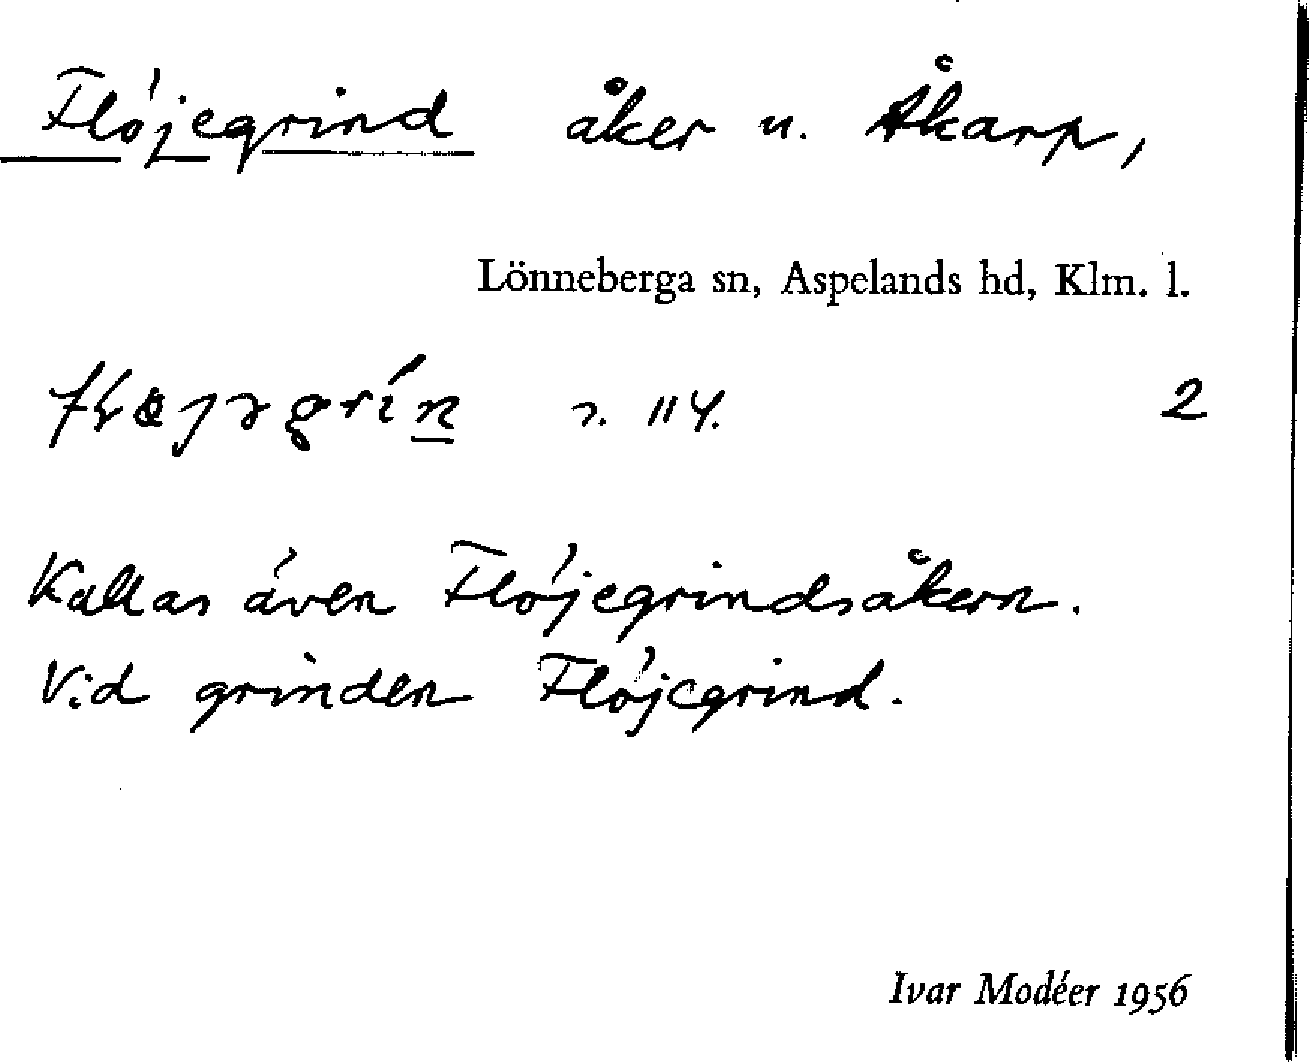 Flöjegrind åker u. Åkarp,
Lönneberga sn, Aspelands hd, Klm. l.
2
Kallas även Flöjegrindsåkern.
Vid grinden Flöjegrind.
Ivar Modéer 1956